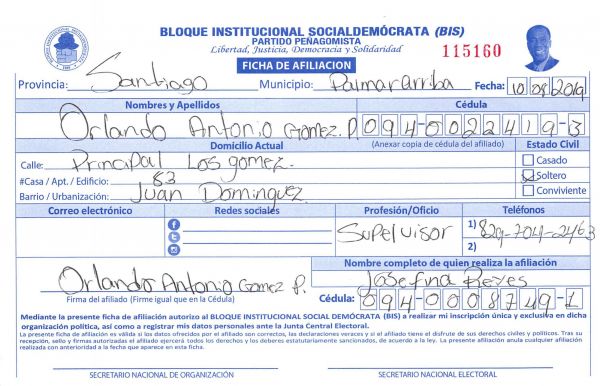 BLOQUE INSTITUCIONAL SOCIALDEMÓCRATA (BIS)
PARTIDO PEÑAGOMISTA
Libertad, Justicia, Democracia y Solidaridad
115160
FICHA DE AFILIACION
Provincia: Santiago Municipio: Palmar arriba Fecha: 10 09 2019
Nombres y Apellidos Cédula
Orlando Antonio Gomez P. 094-0022419-3
Domicilio Actual (Anexar copia de cédula del afiliado) Estado Civil
Calle: Principal Los gomez. Casado
#Casa / Apt. / Edificio: 83 Soltero
Barrio / Urbanización: Juan Dominguez Conviviente
Correo electrónico Redes sociales Profesión/Oficio Teléfonos
Supervisor 1) 829-704-2463
2)
Nombre completo de quien realiza la afiliación
Orlando Antonio Gomez P. Josefina Reyes
Firma del afiliado (Firme igual que en la Cédula) Cédula: 094-0008749-1
Mediante la presente ficha de afiliación autorizo al BLOQUE INSTITUCIONAL SOCIAL DEMÓCRATA (BIS) a realizar mi inscripción única y exclusiva en dicha
organización política, así como a registrar mis datos personales ante la Junta Central Electoral.
La presente ficha de afiliación es válida si los datos ofrecidos por el afiliado son correctos, las declaraciones veraces y el afiliado tiene el disfrute de sus derechos civiles y políticos. Tras su
recepción, sello y firmas autorizadas el afiliado ejercerá todos los derechos y los deberes estatutariamente sancionados, de acuerdo a la ley. La presente afiliación anula cualquier afiliación
realizada con anterioridad a la fecha que aparece en esta ficha.
SECRETARIO NACIONAL DE ORGANIZACIÓN SECRETARIO NACIONAL ELECTORAL